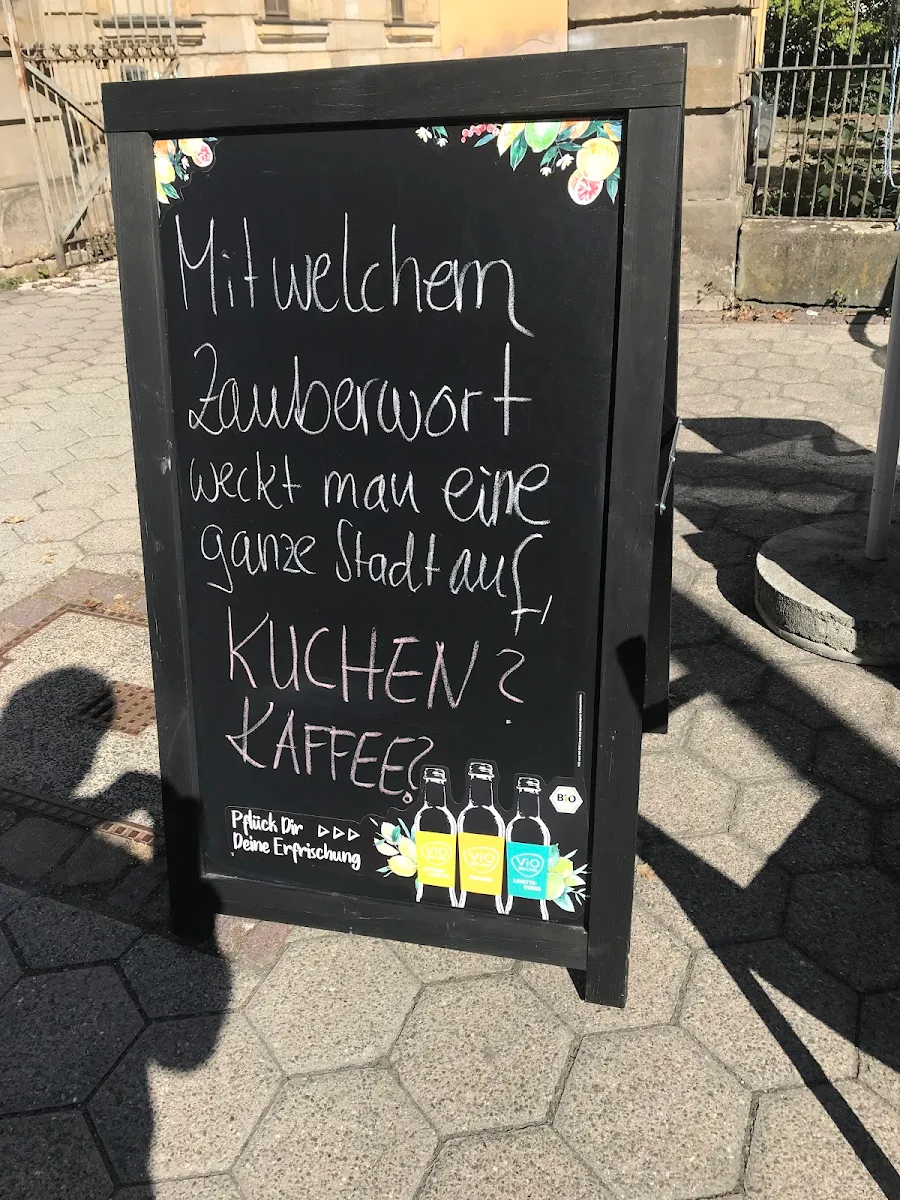 Mit welchem
Zauberwort
weckt man eine
ganze Stadt auf
KUCHEN?
KAFFEE?
Pflück Dir ▷▷▷
Deine Erfrischung
BIO
ViO
ViO
ViO